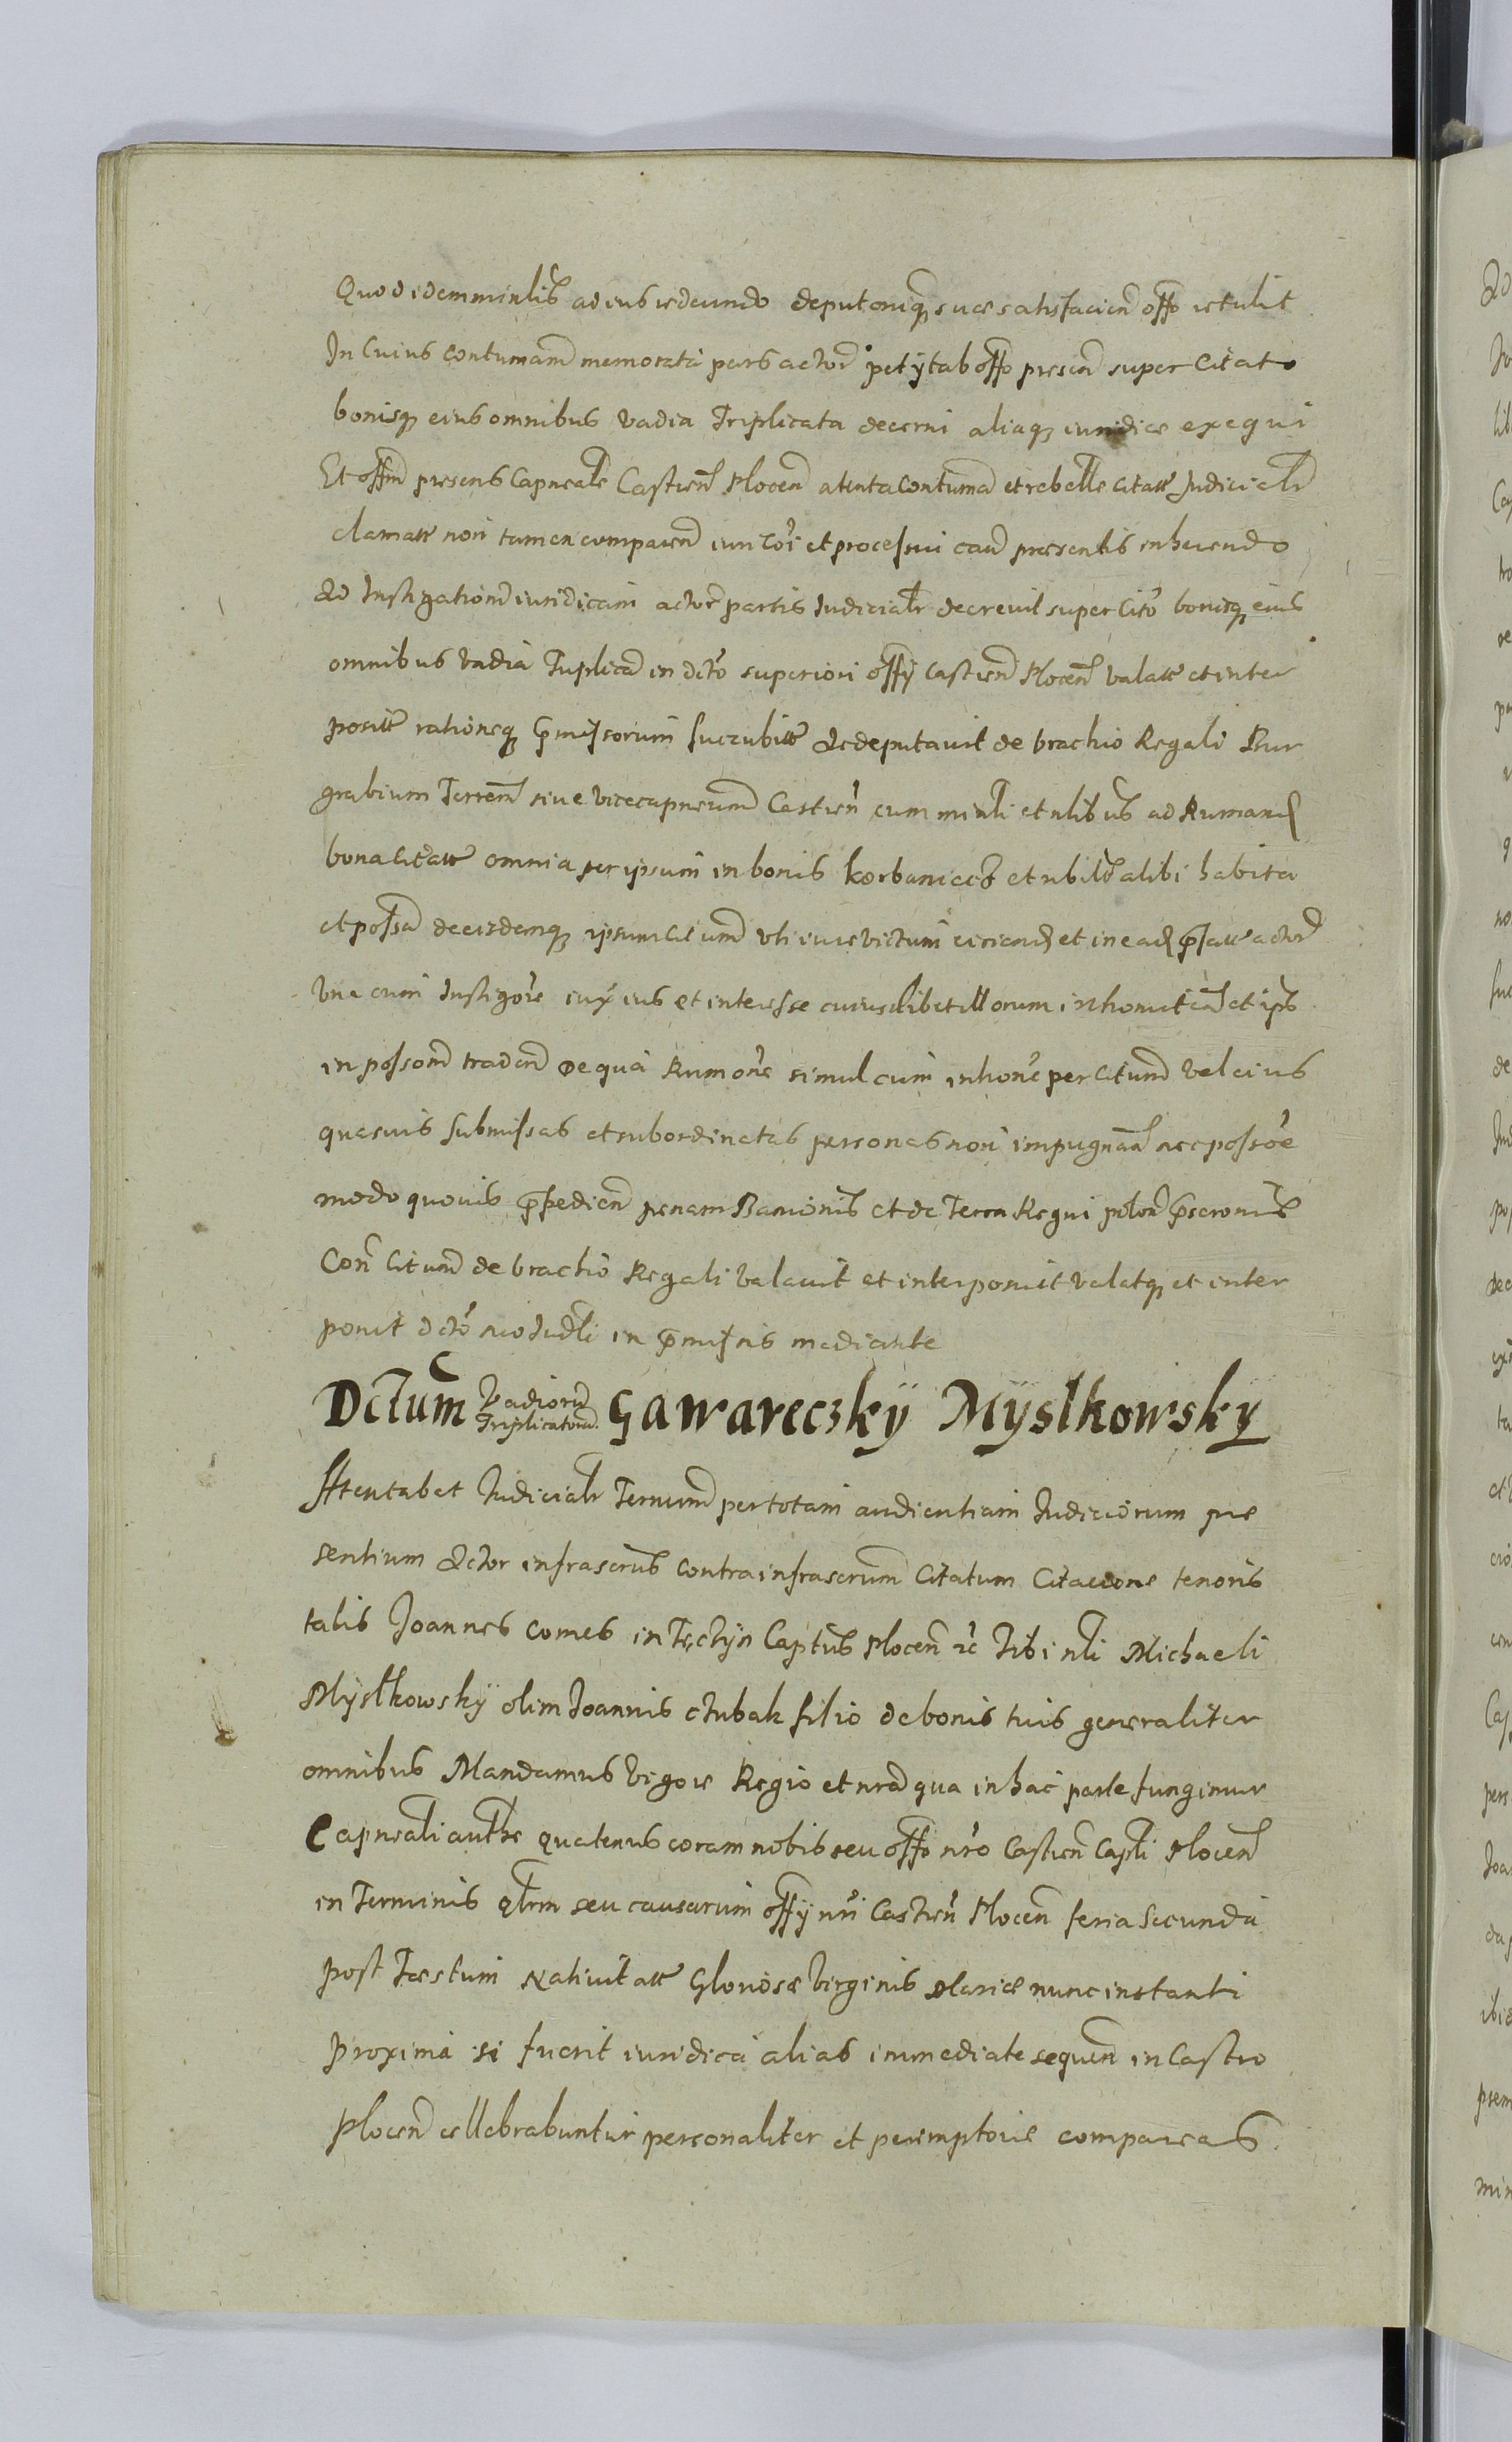 Quod idem minlis ad eius redeundo deputonique suae satisfacien offo retulit
In Cuius Contumam memorata pars actor petyt ab offo presen super Citato
bonisq eius omnibus Vadia Triplicata decerni aliaq iuridice exequi
Et offm presens Capneale Castren Plocen atenta Contuma et rebelle citatt Judicialr
clamatt non tamen comparen iuri Coi et processui cau presentis inherendo
Ad Instigationem iuridicam actor partis Judicialr decrevit super Cito bonisq eius
omnibus Vadia Triplica in dcto superiori offy Castren Plocen valatt et inter
positt rationeq pmissorum succubitt Ac deputavit de brachio Regali Bur
grabium Terrem sive vicecapneum Castren cum minli et nlibus ad Rumand
bona Citatt omnia per ipsum in bonis Korbaniecz et ubilt alibi habita
et possa de eisdemq ipsum Citum uti iure victum eiiciend et in ead pfatt actor
Una cum Instigore iux ius et interesse cuiuslibet illorum intromitten et ips
in possom traden De qua Rumone simul cum introne per Citum vel eius
quasuis submissas et subordinatas personas non impugnan nec possoe
modo quovis ppedien penam Banionis et de Terra Regni polon pscronis
Con Citum de brachio Regali Valauit et interposuit valatq et inter
ponit dcto suo Judli in pmissis mediante
Dctum Vadiorum Triplicatorum Gawareczky Myslkowsky
Attentabat Judicialr Terminum per totam audientiam Judiciorum pre
sentium Actor infrascrus contra infrascrum Citatum Citacione tenoris
talis Joannes comes in Tęczyn Captus Plocen rc Tibi nli Michaeli
Myslkowsky olim Joannis Czubak filio de bonis tuis generaliter
omnibus Mandamus Vigore Regio et nra qua in hac parte fungimur
Capneali autthe quatenus coram nobis seu offo nro Castren Capli Plocen
in Terminis qlrm seu causarum offy nri Castren Plocen feria Secunda
post Festum Nativitatt Gloriosae Virginis Mariae nunc instanti
proxima si fuerit iuridica alias immediate sequen in Castro
Plocen cellebrabuntur personaliter et peremptorie compareas